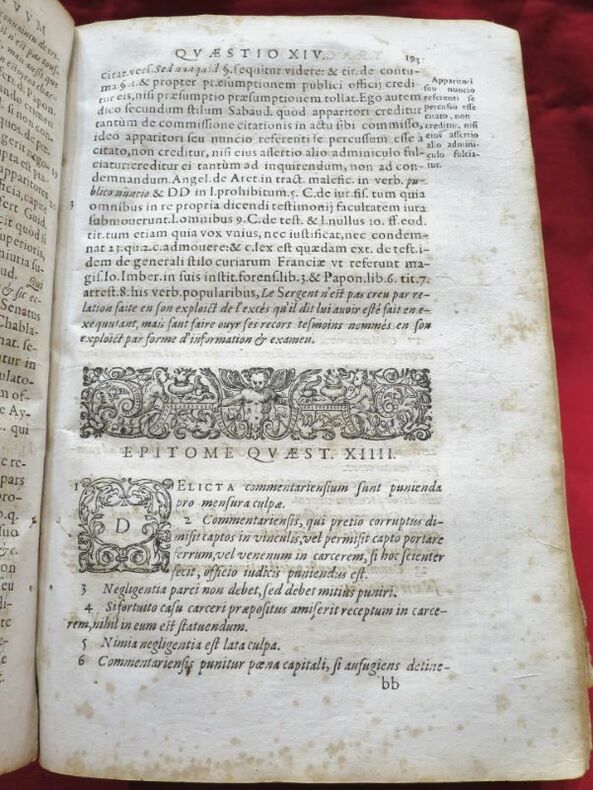 QVÆSTIO XIV. 193
citat. vers. Sed nunquid §. sequitur videre: & tit. de contu-
ma §. 1. & propter præsumptionem publici officij credi
tur eis, nisi præsumptio præsumptionem tollat. Ego autem
dico secundum stilum Sabaud. quòd apparitori creditur
tantùm de commissione citationis in actu sibi commisso,
ideo apparitori seu nuncio referenti se percussum esse à
citato, non creditur, nisi eius assertio alio adminiculo ful-
ciatur: creditur ei tantùm ad inquirendum, non ad con-
demnandum. Angel. de Aret. in tract. malefic. in verb. pu-
blico nuncio & DD in l. prohibitum. 5. C. de iur. fis. tum quia
omnibus in re propria dicendi testimonij facultatem iura
submouerunt. l. omnibus 9. C. de test. & l. nullus 10. ff. eud.
tit. tum etiam quia vox vnius, nec iustificat, nec condem-
nat 23. qu. 2. c. admouere: & c. lex est quædam ext. de test. i-
dem de generali stilo curiarum Franciæ vt referunt ma-
gis. Io. Imber. in suis instit. forens. lib. 3. & Papon. lib. 6. tit. 7.
arrest. 8. his verb. popularibus, Le Sergent n'est pas creu par re-
lation faite en son exploict de l'excés qu'il dit lui avoir esté fait en e-
xequutant, mais faut faire ouyr ses recors tesmoins nommés en son
exploict par forme d'information & examen.
Apparitori
seu nuncio
referenti se
percussū esse
à citato, non
creditur, nisi
eius assertio
alio admini-
culo fulcia-
tur.
EPITOME QVÆST. XIIII.
1 DELICTA commentariensium sunt punienda
pro mensura culpæ.
2 Commentariensis, qui pretio corruptus di-
misit captos in vinculis, vel permisit capto portare
ferrum, vel venenum in carcerem, si hoc scienter
fecit, officio iudicis puniendus est.
3 Negligentia parci non debet, sed debet mitius puniri.
4 Si fortuito casu carceri præpositus amiserit receptum in carce-
rem, nihil in eum est statuendum.
5 Nimia negligentia est lata culpa.
6 Commentariensis punitur pœna capitali, si aufugiens detine-
bb